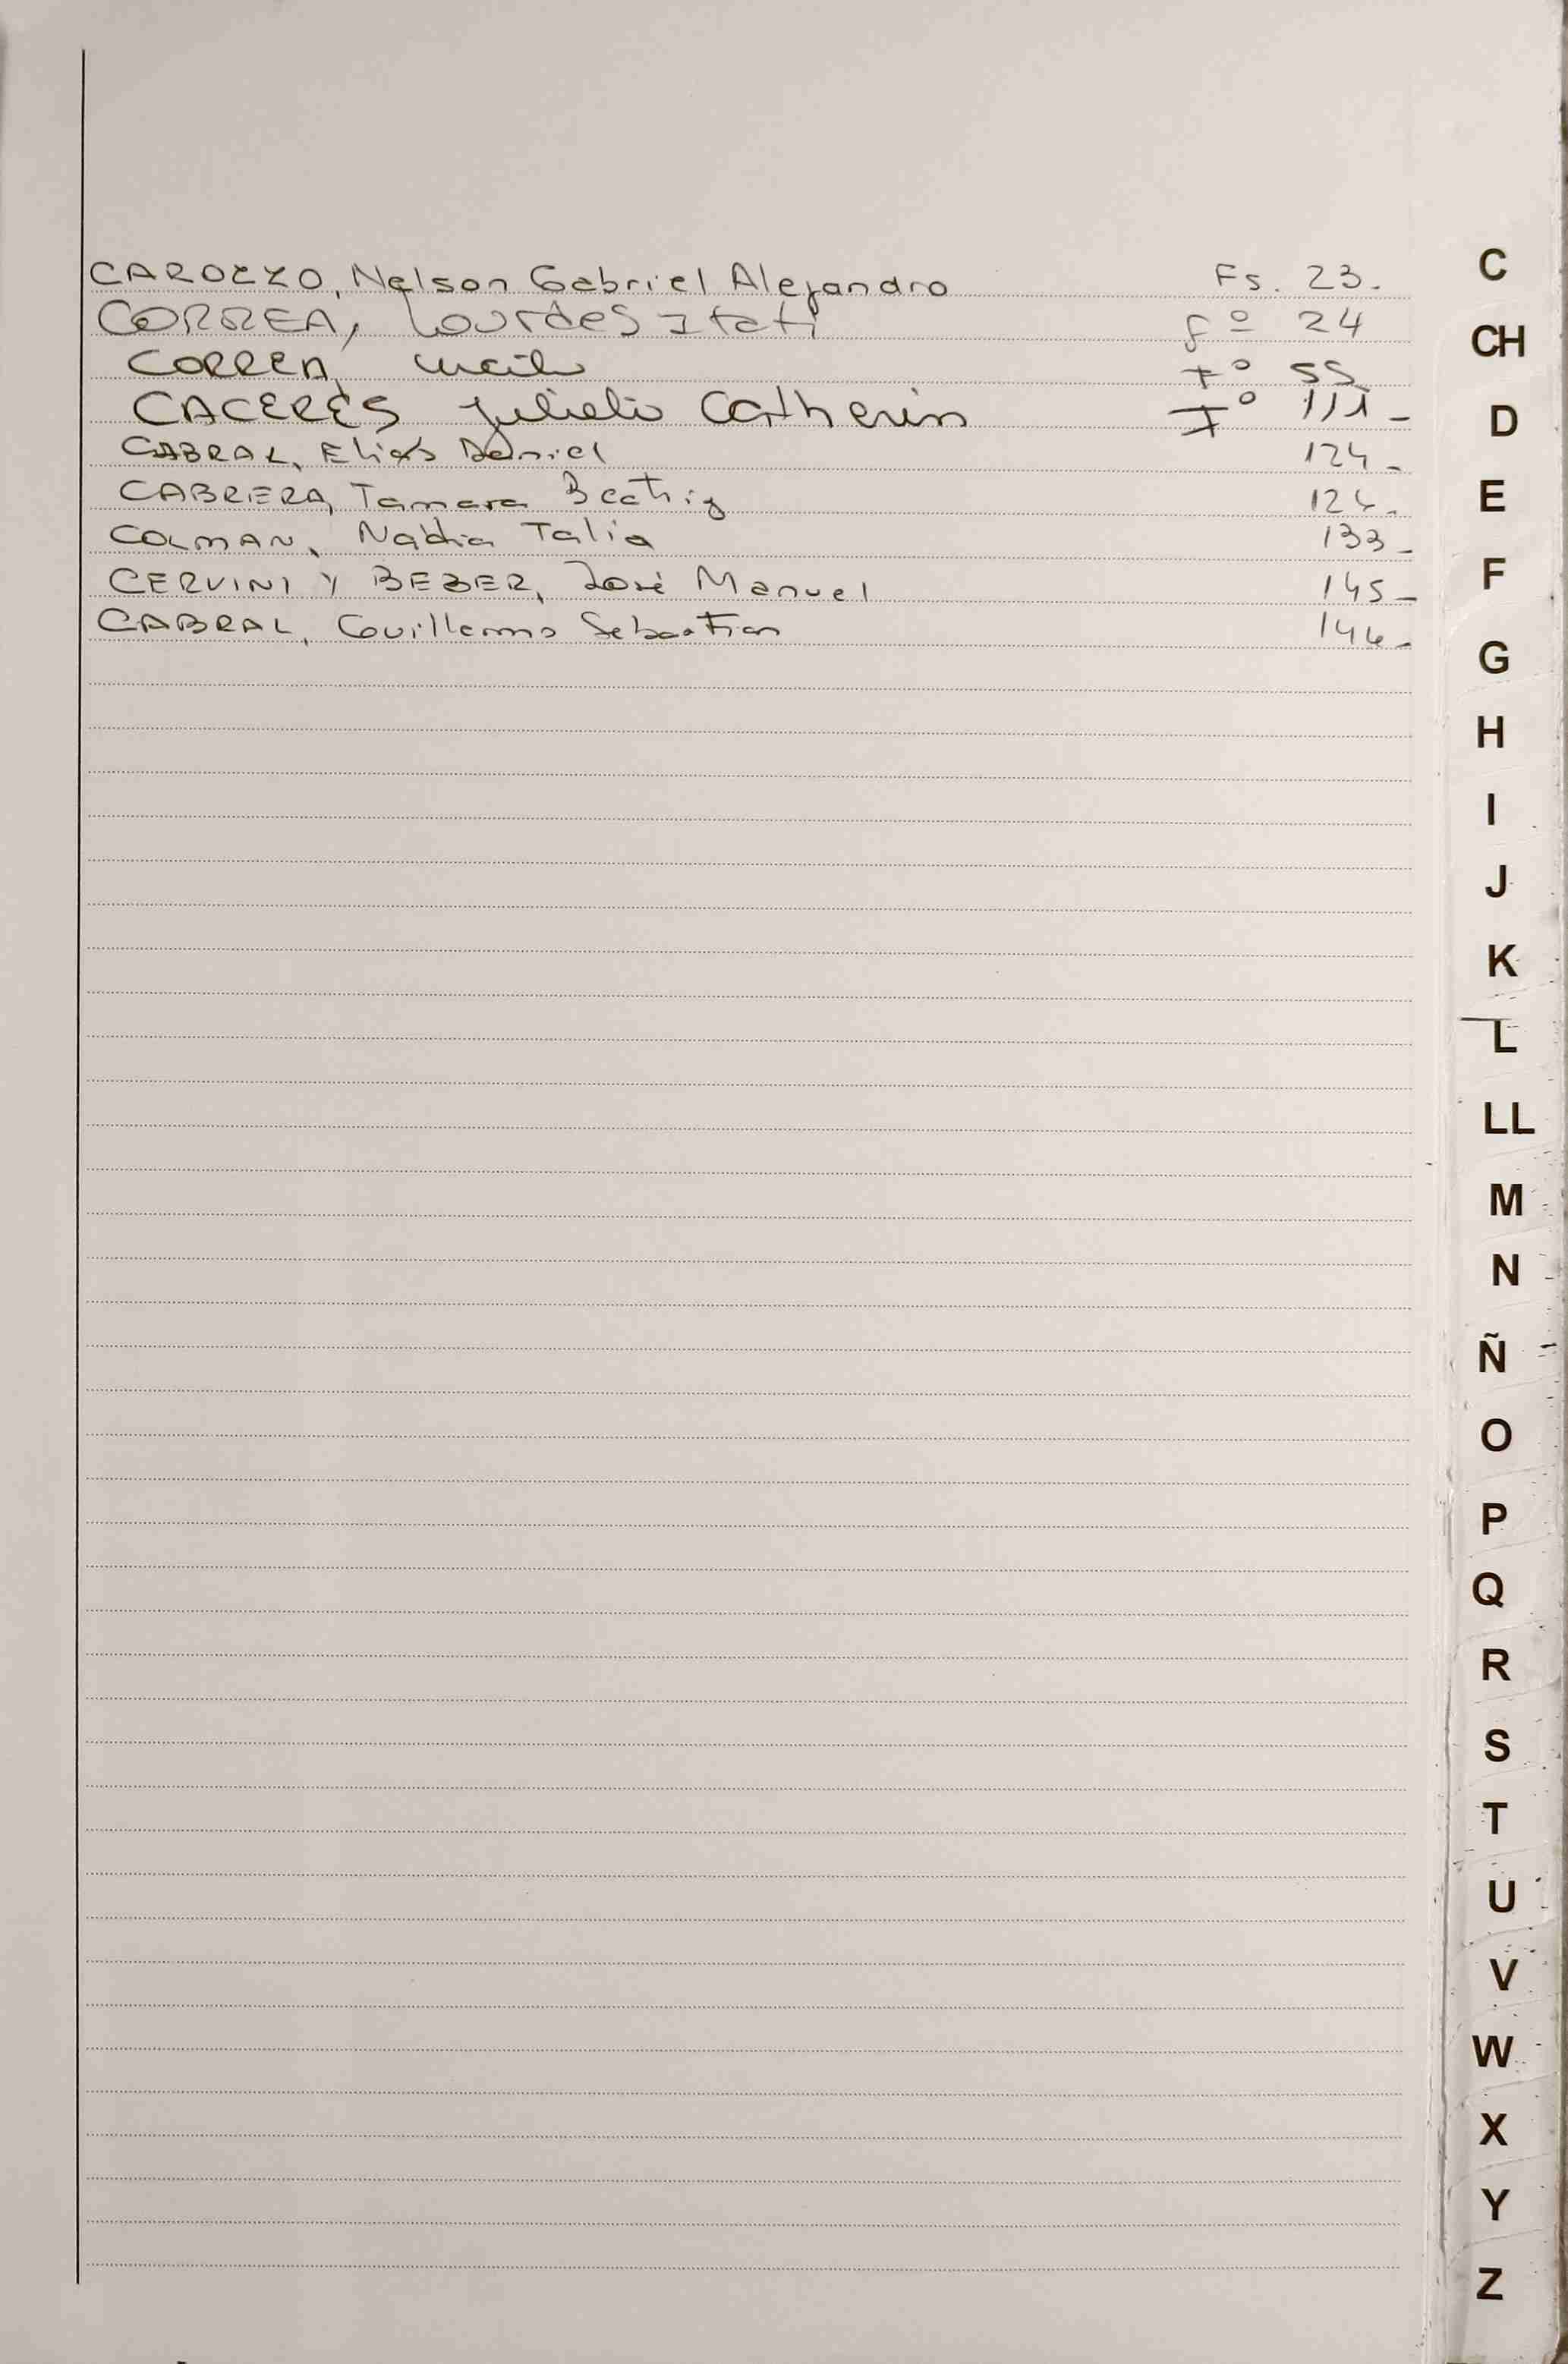 CAROZZO, Nelson Gabriel Alejandro Fs. 23.
CORREA, Lourdes Itati fº 24
CORREA, Fº 55
CACERES Julieta Catherin Fº 111-
CABRAL, Elías Daniel 124-
CABRERA, Tamara Beatriz 124.
COLMAN, Nadia Talia 133-
CERVINI Y BEBER, José Manuel 145-
CABRAL, Guillermo Sebastian 144-
C
CH
D
E
F
G
H
I
J
K
L
LL
M
N
Ñ
O
P
Q
R
S
T
U
V
W
X
Y
Z